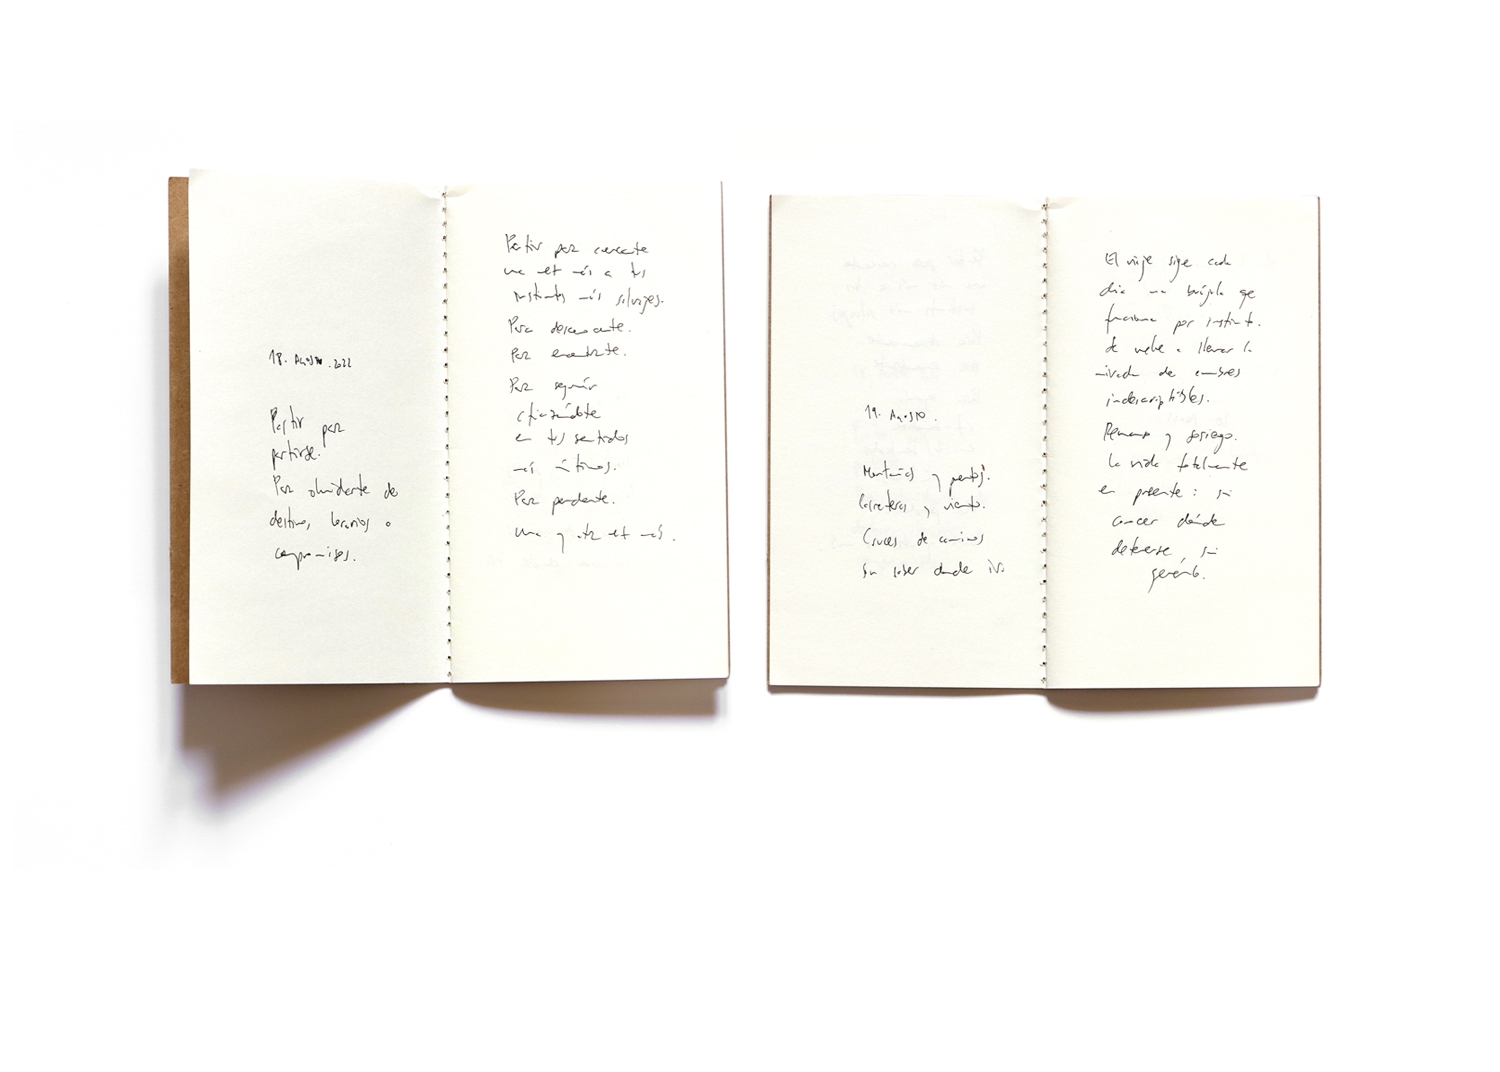 18. Agosto. 2022
Partir para
partirse.
Para olvidarte de
destinos, horarios o
compromisos.
Partir para conectarte
una vez más a tus
instintos más salvajes.
Para desconectarte.
Para encontrarte.
Para seguir
en tus sentidos
más íntimos.
Para perderte.
una y otra vez más.
19. Agosto.
Montañas y puertos.
Carreteras y viento.
Cruces de caminos
Sin saber donde ir.
El viaje sigue cada
día una brújula que
funciona por instinto.
Se vuelve a llenar la
mirada de cumbres
indescriptibles.
Remanso y sosiego.
La vida totalmente
en presente: sin
conocer dónde
detenerse, sin